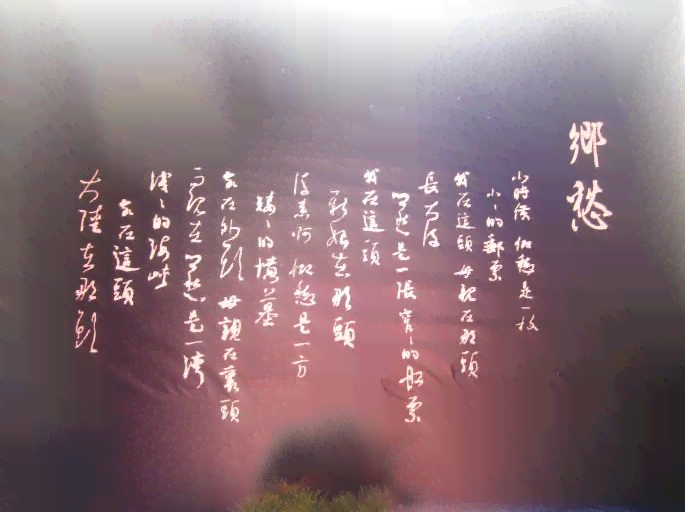 鄉愁
小時候 鄉愁是一枚
小小的郵票
我在這頭 母親在那頭
長大後
鄉愁是一張窄窄的船票
我在這頭
新娘在那頭
後來啊 鄉愁是一方
矮矮的墳墓
我在外頭 母親在裏頭
而現在 鄉愁是一灣
淺淺的海峽
我在這頭
大陸在那頭